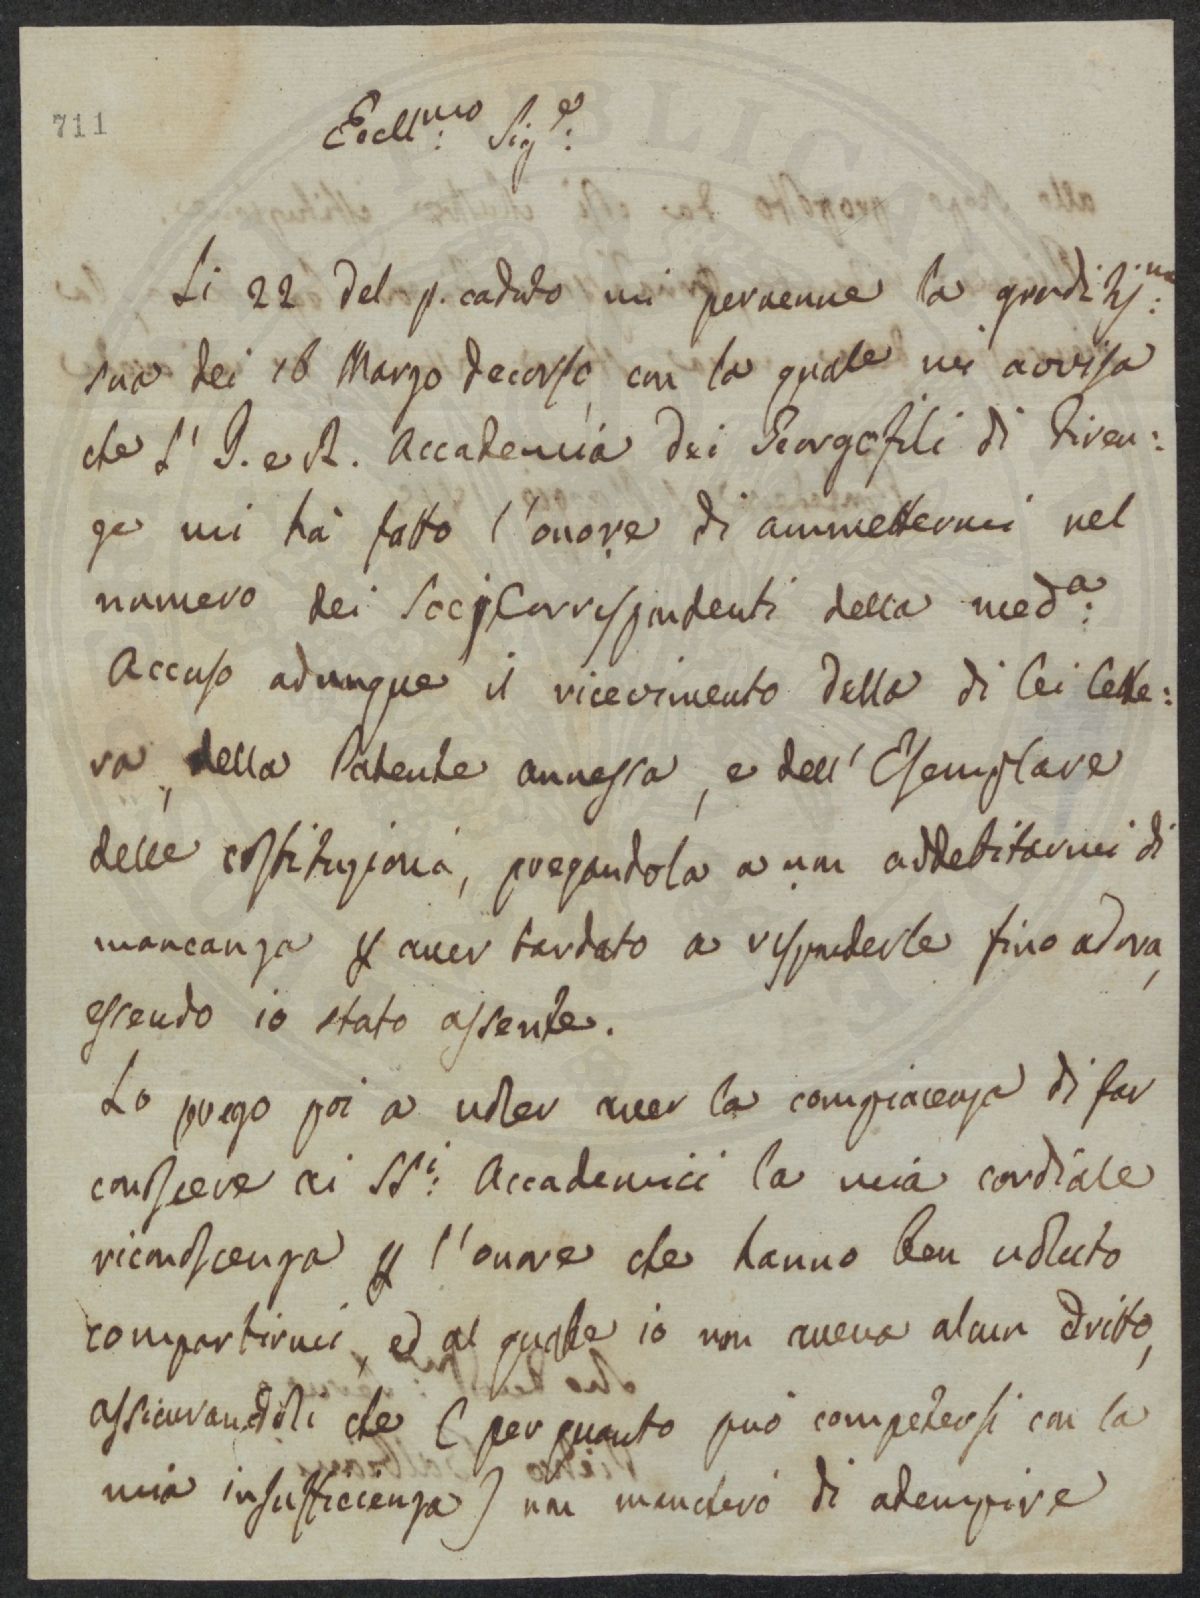 711
Eccell:mo Sig:e
Li 22 del p. caduto mi pervenne la graditis:ma
sua dei 16 Marzo decorso, con la quale mi avvisa
che l' I. e R. Accademia dei Georgofili di Firen:
ze mi hà fatto l'onore di ammettermi nel
numero dei Socj Corrispondenti della med:a
Accuso adunque il ricevimento della di lei lette:
ra, della Patente annessa, e dell' Esemplare
delle costituzioni, pregandola a non addebitarmi di
mancanza p aver tardato a risponderle fino adora,
essendo io stato assente.
La prego poi a voler aver la compiacenza di far
conoscere ai SS:i Accademici la mia cordiale
riconoscenza p l'onore che hanno ben voluto
compartirmi, ed al quale io non aveva alcun dritto,
assicurandoli che ( per quanto può competersi con la
mia insufficienza ) non mancherò di adempire